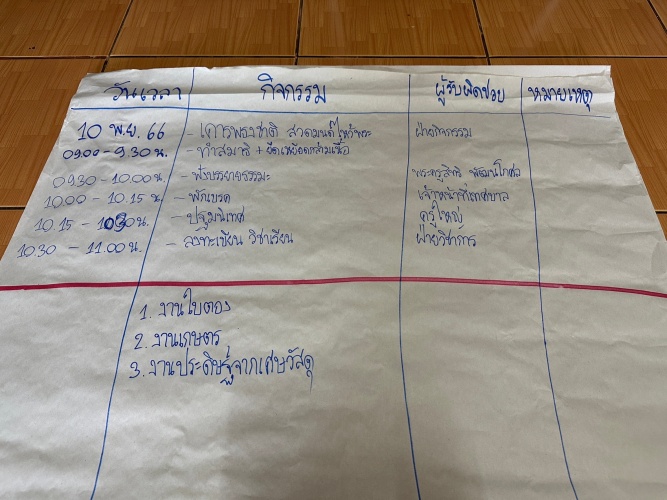 วันเวลา กิจกรรม ผู้รับผิดชอบ หมายเหตุ
10 พ.ย. 66 - เคารพธงชาติ สวดมนต์ไหว้พระ ฝ่ายกิจกรรม
09.00 - 9.30 น. - ทำสมาธิ + ยืดเหยียดกล้ามเนื้อ
09.30 - 10.00 น. - ฟังบรรยายธรรมะ พระครูสิทธิ พัฒน์โกศล
10.00 - 10.15 น. - พักเบรค เจ้าหน้าที่เทศบาล
10.15 - 10.30 น. - ปฐมนิเทศ ครูใหญ่
10.30 - 11.00 น. - ลงทะเบียน วิชาเรียน ฝ่ายวิชาการ
1. งานใบตอง
2. งานเกษตร
3. งานประดิษฐ์จากเศษวัสดุ